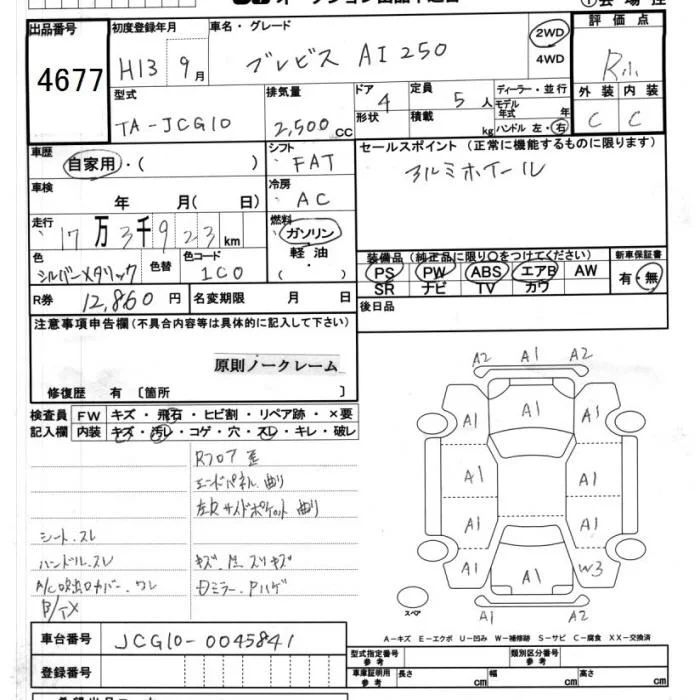 出品番号
4677
初度登録年月
H13 9月
車名・グレード
ブレビス AI250
2WD
4WD
評価点
外装 内装
C C
型式
TA-JCG10
排気量
2,500 CC
ドア 4
形状
定員 5人
積載 kg
ディーラー・並行
モデル年式 年
ハンドル 左・右
車歴
自家用・( )
シフト
FAT
車検
年 月( 日)
冷房
AC
走行
17万3千923km
燃料
ガソリン
軽油
・( )
色
シルバーメタリック
色替
色コード
1C0
R券 12,860円
名変期限 月 日
セールスポイント (正常に機能するものに限ります)
アルミホイール
装備品 (純正品に限り○をつけてください)
PS PW ABS エアB AW
SR ナビ TV カワ
新車保証書
有・無
後日品
注意事項申告欄(不具合内容等は具体的に記入して下さい)
原則ノークレーム
修復歴 有 〔箇所 〕
検査員 FW キズ・飛石・ヒビ割・リペア跡・×要
記入欄 内装 キズ・汚レ・コゲ・穴・スレ・キレ・破レ
Rフロア
エンドパネル 曲り
サイドポケット 曲り
シート.スレ
ハンドル.スレ
A/C吹出口カバー.ワレ
キズ・凹.スリキズ
ミラー.Pハゲ
A2 A1 A2
A1 A1 A1
A1 A1
A1 A1
A1 A1 W3
A1 A1 A2
スペア
A-キズ E-エクボ U-凹み W-補修跡 S-サビ C-腐食 XX-交換済
車台番号 JCG10-0045841
登録番号
型式指定番号 参考
類別区分番号 参考
車庫証明用 参考 長さ cm 幅 cm 高さ cm